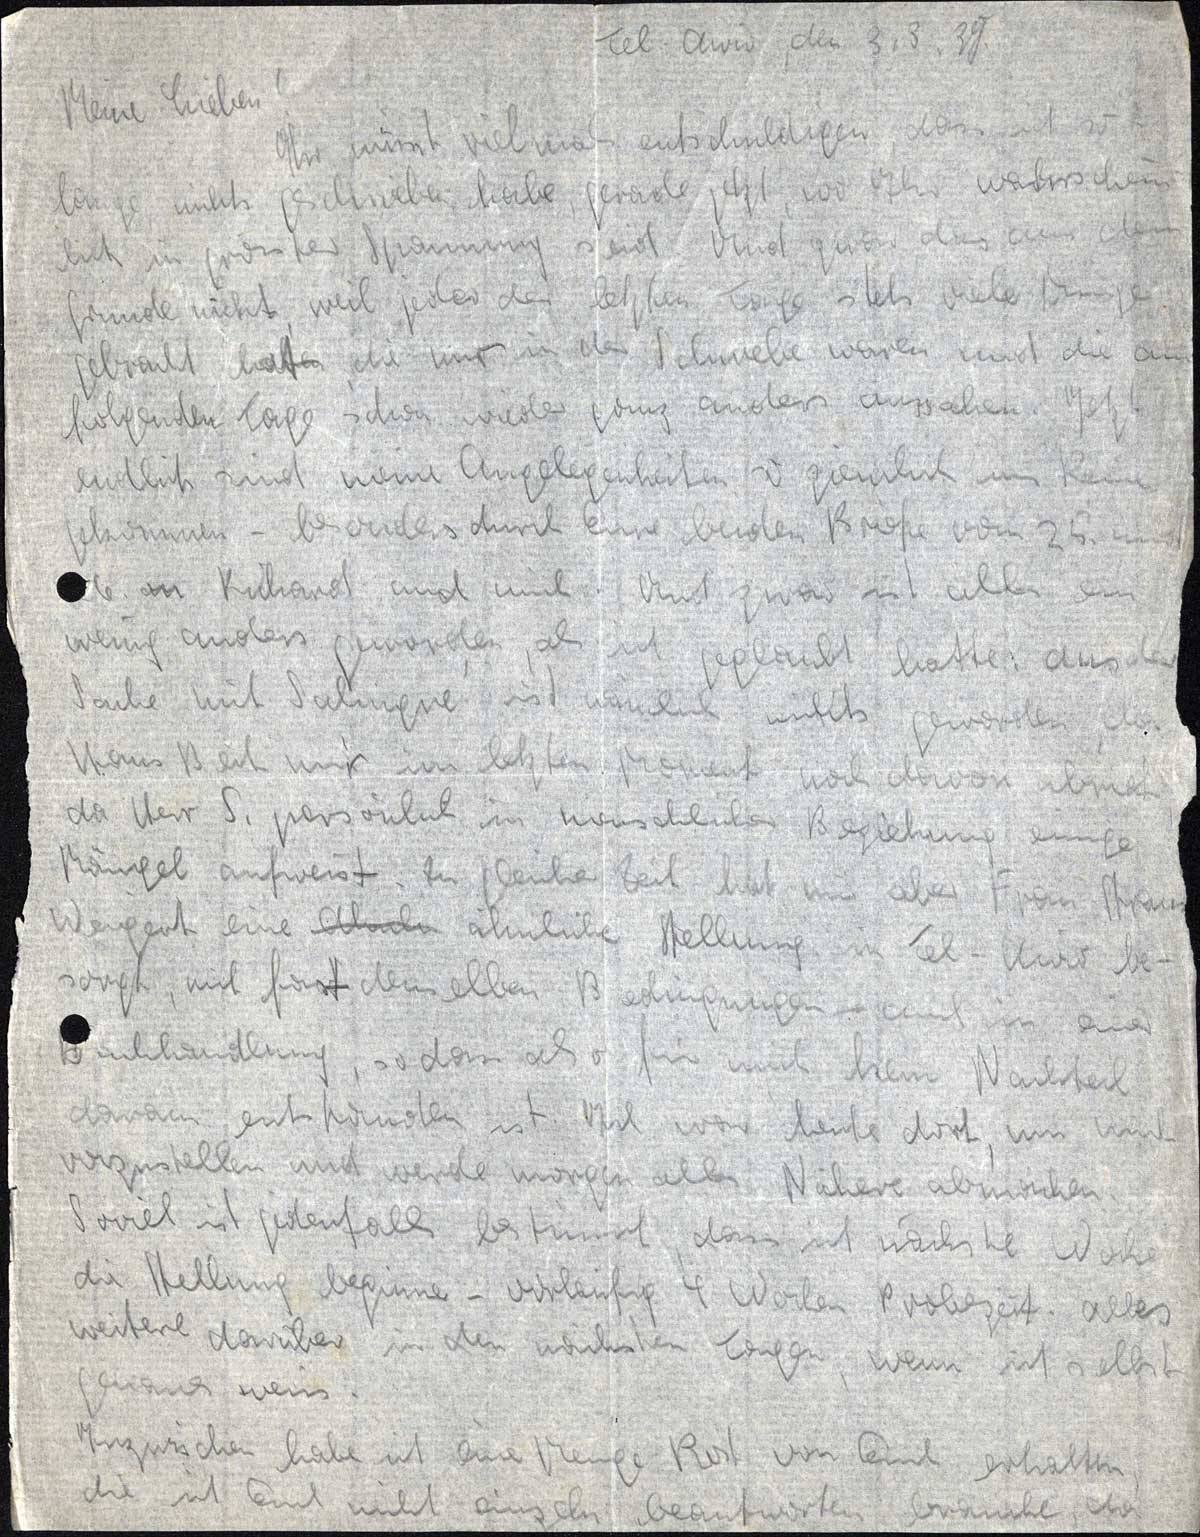 Tel-Aviv, den 3.3.39.
Meine Lieben!
Ihr müsst vielmals entschuldigen, dass ich so
lange nichts geschrieben habe, gerade jetzt, wo Ihr wahrschein
lich in grösster Spannung seid. Und zwar das aus dem
Grunde nicht, weil jeder der letzten Tage stets viele Dinge
gebracht hatte, die nur in der Schwebe waren und die am
folgenden Tage schon wieder ganz anders aussahen. Jetzt
endlich sind meine Angelegenheiten so ziemlich ins Reine
gekommen - besonders durch Eure beiden Briefe vom 25. und
26. an Richard und mich. Und zwar ist alles ein
wenig anders geworden, als ich geglaubt hatte: aus der
Sache mit Salingre ist nämlich nichts geworden, da
Hans Beit mir im letzten Moment noch davon abriet
da Herr S. persönlich in menschlicher Beziehung einige
Mängel aufweist. Zu gleicher Zeit hat mir aber Frau
Weigert eine ähnliche Stellung in Tel-Aviv be-
sorgt, mit fast denselben Bedingungen - auch in einer
Buchhandlung, sodass also für mich kein Nachteil
daraus entstanden ist. Ich war heute dort, um mich
vorzustellen und werde morgen alles Nähere abmachen.
Soviel ist jedenfalls bestimmt, dass ich nächste Woche
die Stellung beginne - vorläufig 4 Wochen Probezeit. Alles
weitere darüber in den nächsten Tagen, wenn ich selbst
genaues weiss.
Inzwischen habe ich eine Menge Post von Euch erhalten,
die ich Euch nicht einzeln beantworten brauche, da